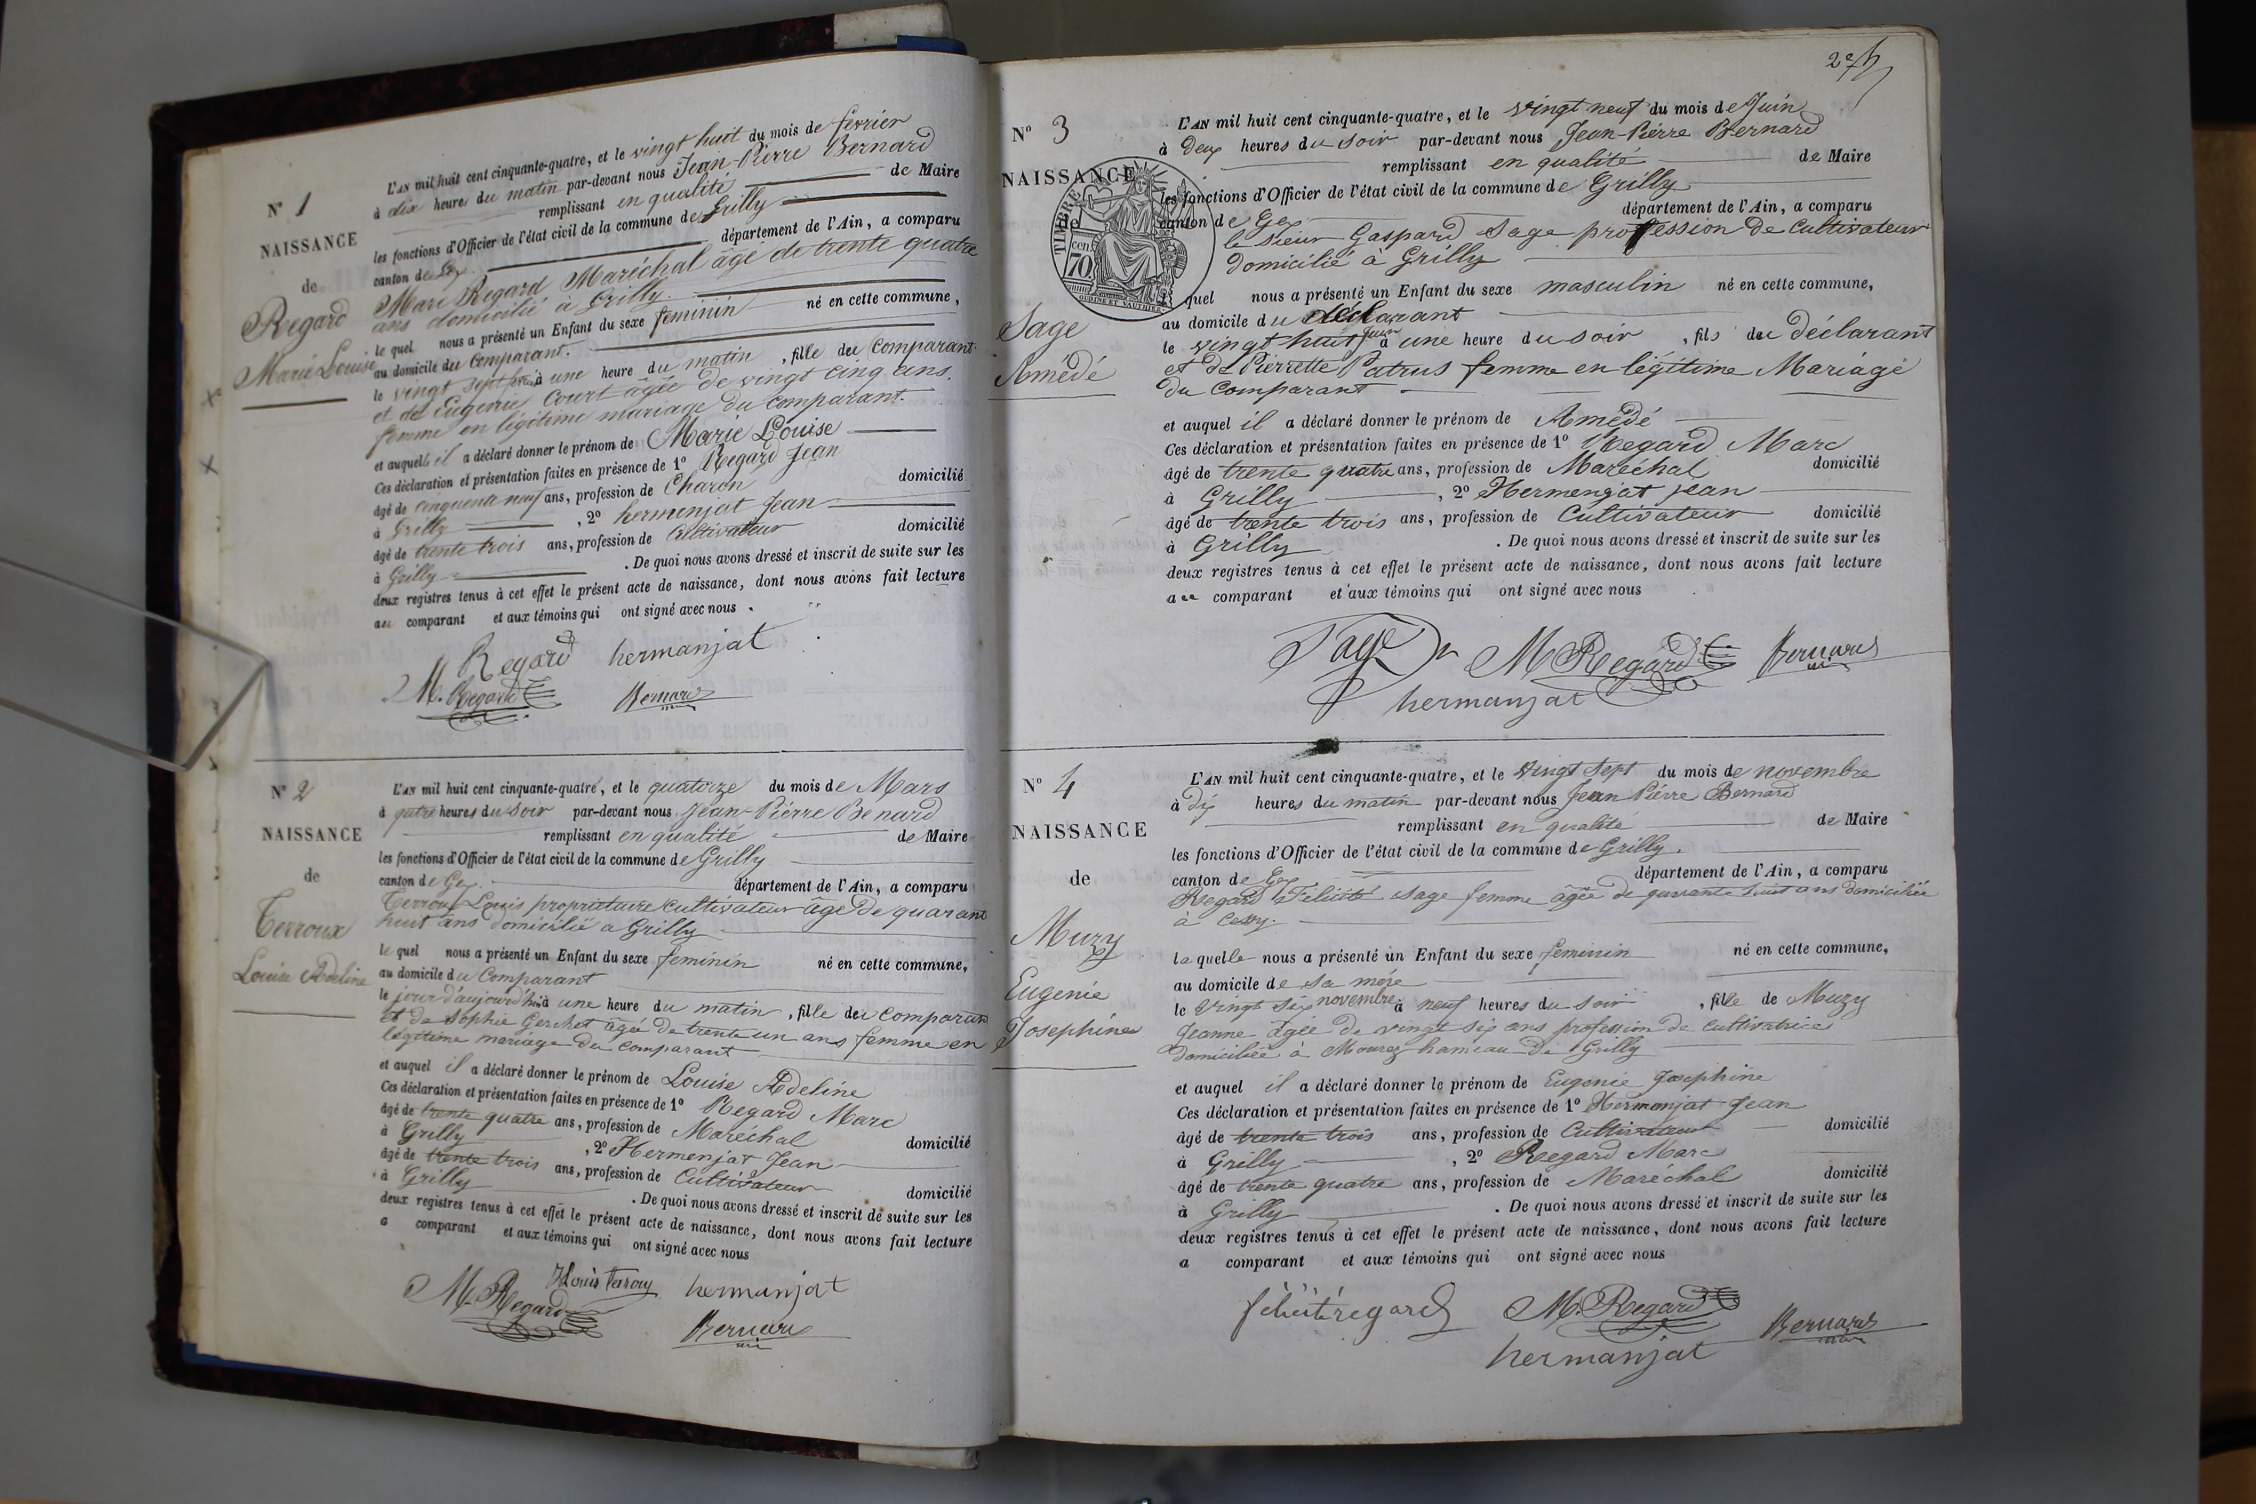 N° 1
NAISSANCE
de
Regard
Marie Louise
L'AN mil huit cent cinquante-quatre, et le vingt huit du mois de fevrier
à dix heures du matin par-devant nous Jean-Pierre Bernard
remplissant en qualité de Maire
les fonctions d'Officier de l'état civil de la commune de Grilly
canton de Gex département de l'Ain, a comparu
Marc Regard Maréchal âgé de trente quatre
ans domicilié à Grilly.
le quel nous a présenté un Enfant du sexe feminin né en cette commune,
au domicile du Comparant.
le vingt sept à une heure du matin, fille du Comparant
et de Eugenie Court âgée de vingt cinq ans.
femme en légitime mariage du comparant.
et auquel il a déclaré donner le prénom de Marie Louise
Ces déclaration et présentation faites en présence de 1° Regard Jean
âgé de cinquante neuf ans, profession de Charon domicilié
à Grilly, 2° hermenjat Jean
âgé de trente trois ans, profession de Cultivateur domicilié
à Grilly. De quoi nous avons dressé et inscrit de suite sur les
deux registres tenus à cet effet le présent acte de naissance, dont nous avons fait lecture
au comparant et aux témoins qui ont signé avec nous.
Regard hermanjat
M. Regard Bernard
N° 2
NAISSANCE
de
Terroux
Louise Adeline
L'AN mil huit cent cinquante-quatre, et le quatorze du mois de Mars
à quatre heures du soir par-devant nous Jean-Pierre Benard
remplissant en qualité de Maire
les fonctions d'Officier de l'état civil de la commune de Grilly
canton de Gex. département de l'Ain, a comparu
Terroux Louis propriétaire cultivateur âgé de quarant
huit ans domicilié a Grilly
le quel nous a présenté un Enfant du sexe feminin né en cette commune,
au domicile du Comparant
le jour d'aujourd'hui à une heure du matin, fille du comparant
et de Sophie Gerchet âgée de trente un ans femme en
légitime mariage du comparant
et auquel il a déclaré donner le prénom de Louise Adeline
Ces déclaration et présentation faites en présence de 1° Regard Marc
âgé de trente quatre ans, profession de Maréchal domicilié
à Grilly, 2° Hermenjat Jean
âgé de trente trois ans, profession de Cultivateur domicilié
à Grilly. De quoi nous avons dressé et inscrit de suite sur les
deux registres tenus à cet effet le présent acte de naissance, dont nous avons fait lecture
a comparant et aux témoins qui ont signé avec nous
M. Regard Louis hermanjat
Bernard
2e
N° 3
NAISSANCE
de
TIMBRE
70 cen
OUDINÉ ET VAUTHIER
Sage
Amédé
L'AN mil huit cent cinquante-quatre, et le vingt neuf du mois de Juin
à deux heures du soir par-devant nous Jean-Pierre Bernard
remplissant en qualité de Maire
les fonctions d'Officier de l'état civil de la commune de Grilly
canton de Gex département de l'Ain, a comparu
le sieur Gaspard Sage profession de Cultivateur
domicilié à Grilly
le quel nous a présenté un Enfant du sexe masculin né en cette commune,
au domicile du déclarant
le vingt huit Juin à une heure du soir, fils du déclarant
et de Pierrette Patrus femme en légitime Mariage
du Comparant
et auquel il a déclaré donner le prénom de Amédé
Ces déclaration et présentation faites en présence de 1° Regard Marc
âgé de trente quatre ans, profession de Maréchal domicilié
à Grilly, 2° Hermengat Jean
âgé de trente trois ans, profession de Cultivateur domicilié
à Grilly. De quoi nous avons dressé et inscrit de suite sur les
deux registres tenus à cet effet le présent acte de naissance, dont nous avons fait lecture
au comparant et aux témoins qui ont signé avec nous
Sage M Regard Bernard
hermanjat
N° 4
NAISSANCE
de
Muzy
Eugenie
Josephine
L'AN mil huit cent cinquante-quatre, et le vingt sept du mois de novembre
à dix heures du matin par-devant nous Jean Pierre Bernard
remplissant en qualité de Maire
les fonctions d'Officier de l'état civil de la commune de Grilly.
canton de Gex département de l'Ain, a comparu
Regard Félicité sage femme âgée de quarante huit ans domiciliée
à Cessy.
la quelle nous a présenté un Enfant du sexe feminin né en cette commune,
au domicile de sa mére
le vingt six novembre à neuf heures du soir, fille de Muzy
Jeanne âgée de vingt six ans profession de cultivatrice
domiciliée à Mourex hameau de Grilly
et auquel il a déclaré donner le prénom de Eugenie Josephine
Ces déclaration et présentation faites en présence de 1° Hermenjat Jean
âgé de trente trois ans, profession de Cultivateur domicilié
à Grilly, 2° Regard Marc
âgé de trente quatre ans, profession de Maréchal domicilié
à Grilly. De quoi nous avons dressé et inscrit de suite sur les
deux registres tenus à cet effet le présent acte de naissance, dont nous avons fait lecture
a comparant et aux témoins qui ont signé avec nous
félicité regard M. Regard Bernard
hermanjat